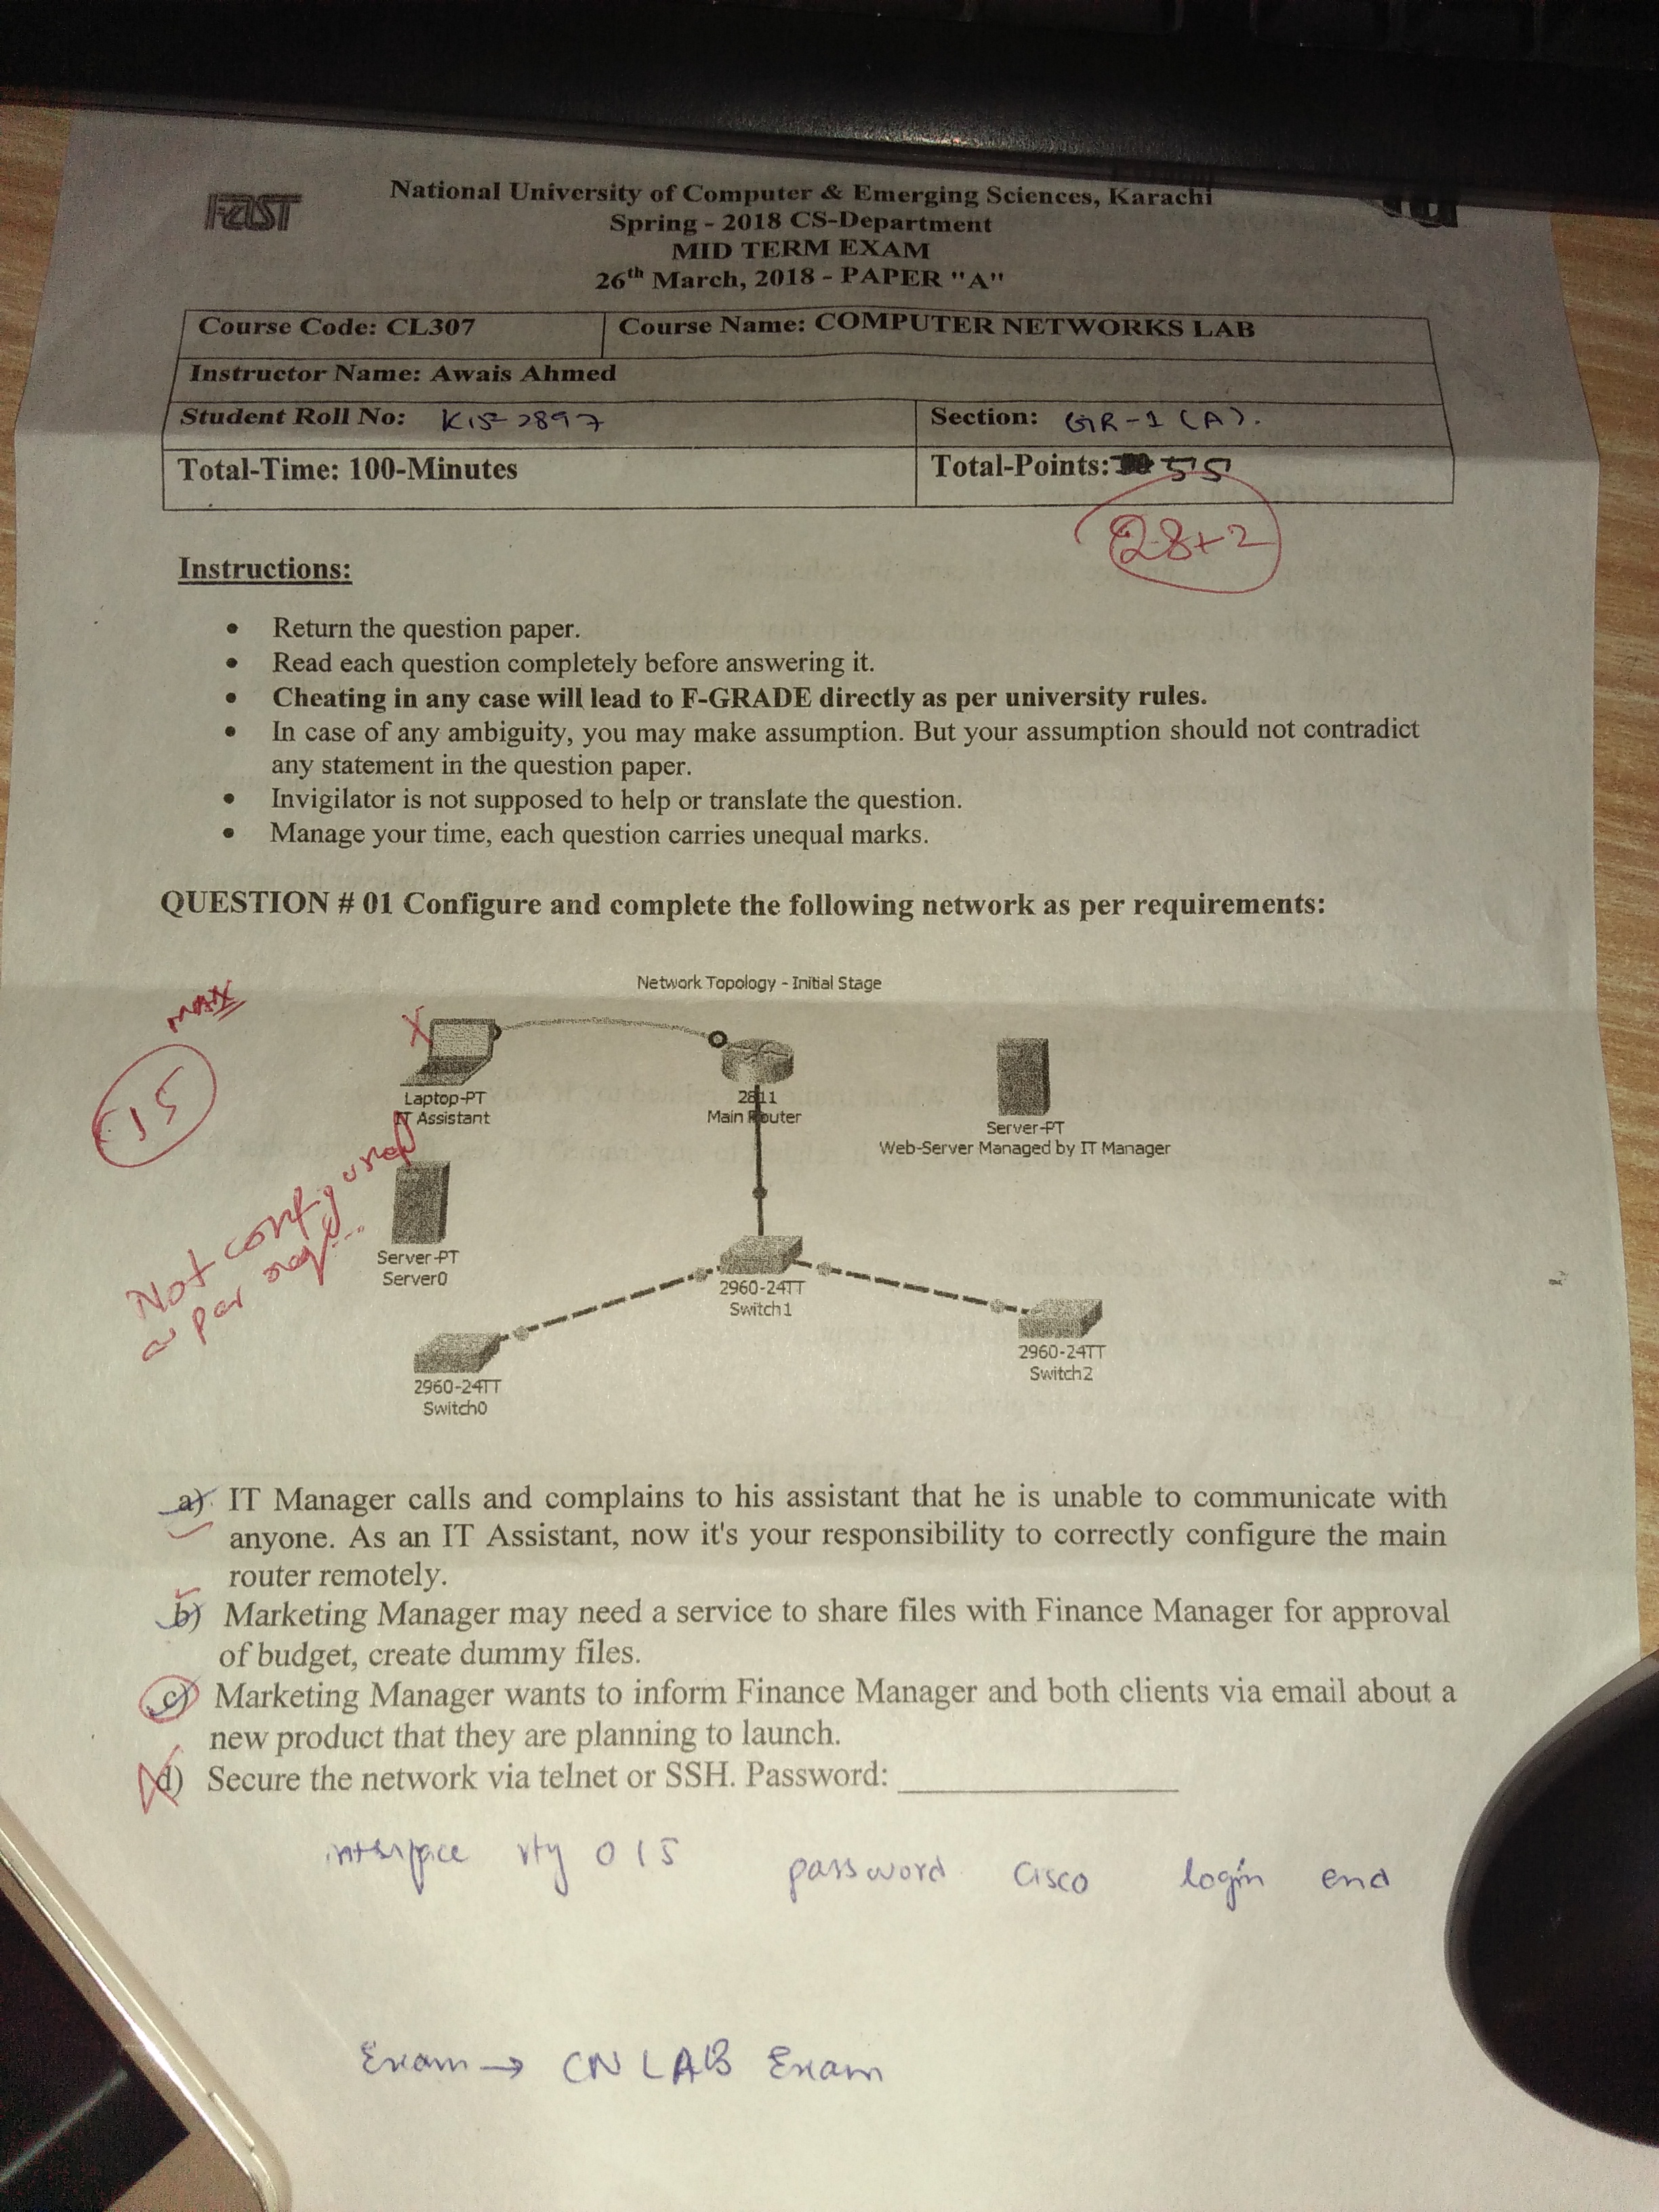 FAST
National University of Computer & Emerging Sciences, Karachi
Spring - 2018 CS-Department
MID TERM EXAM
26th March, 2018 - PAPER "A"
Course Code: CL307 Course Name: COMPUTER NETWORKS LAB
Instructor Name: Awais Ahmed
Student Roll No: K15-2897 Section: GR-1 (A).
Total-Time: 100-Minutes Total-Points: 55
28+2
Instructions:
• Return the question paper.
• Read each question completely before answering it.
• Cheating in any case will lead to F-GRADE directly as per university rules.
• In case of any ambiguity, you may make assumption. But your assumption should not contradict
any statement in the question paper.
• Invigilator is not supposed to help or translate the question.
• Manage your time, each question carries unequal marks.
QUESTION # 01 Configure and complete the following network as per requirements:
Network Topology - Initial Stage
MAX
15
Laptop-PT
IT Assistant
2811
Main Router
Server-PT
Web-Server Managed by IT Manager
Not configured
as per req...
Server-PT
Server0
2960-24TT
Switch1
2960-24TT
Switch2
2960-24TT
Switch0
a) IT Manager calls and complains to his assistant that he is unable to communicate with
anyone. As an IT Assistant, now it's your responsibility to correctly configure the main
router remotely.
b) Marketing Manager may need a service to share files with Finance Manager for approval
of budget, create dummy files.
c) Marketing Manager wants to inform Finance Manager and both clients via email about a
new product that they are planning to launch.
d) Secure the network via telnet or SSH. Password: ____________
interface vty 0 15 password cisco login end
Exam → CN LAB Exam